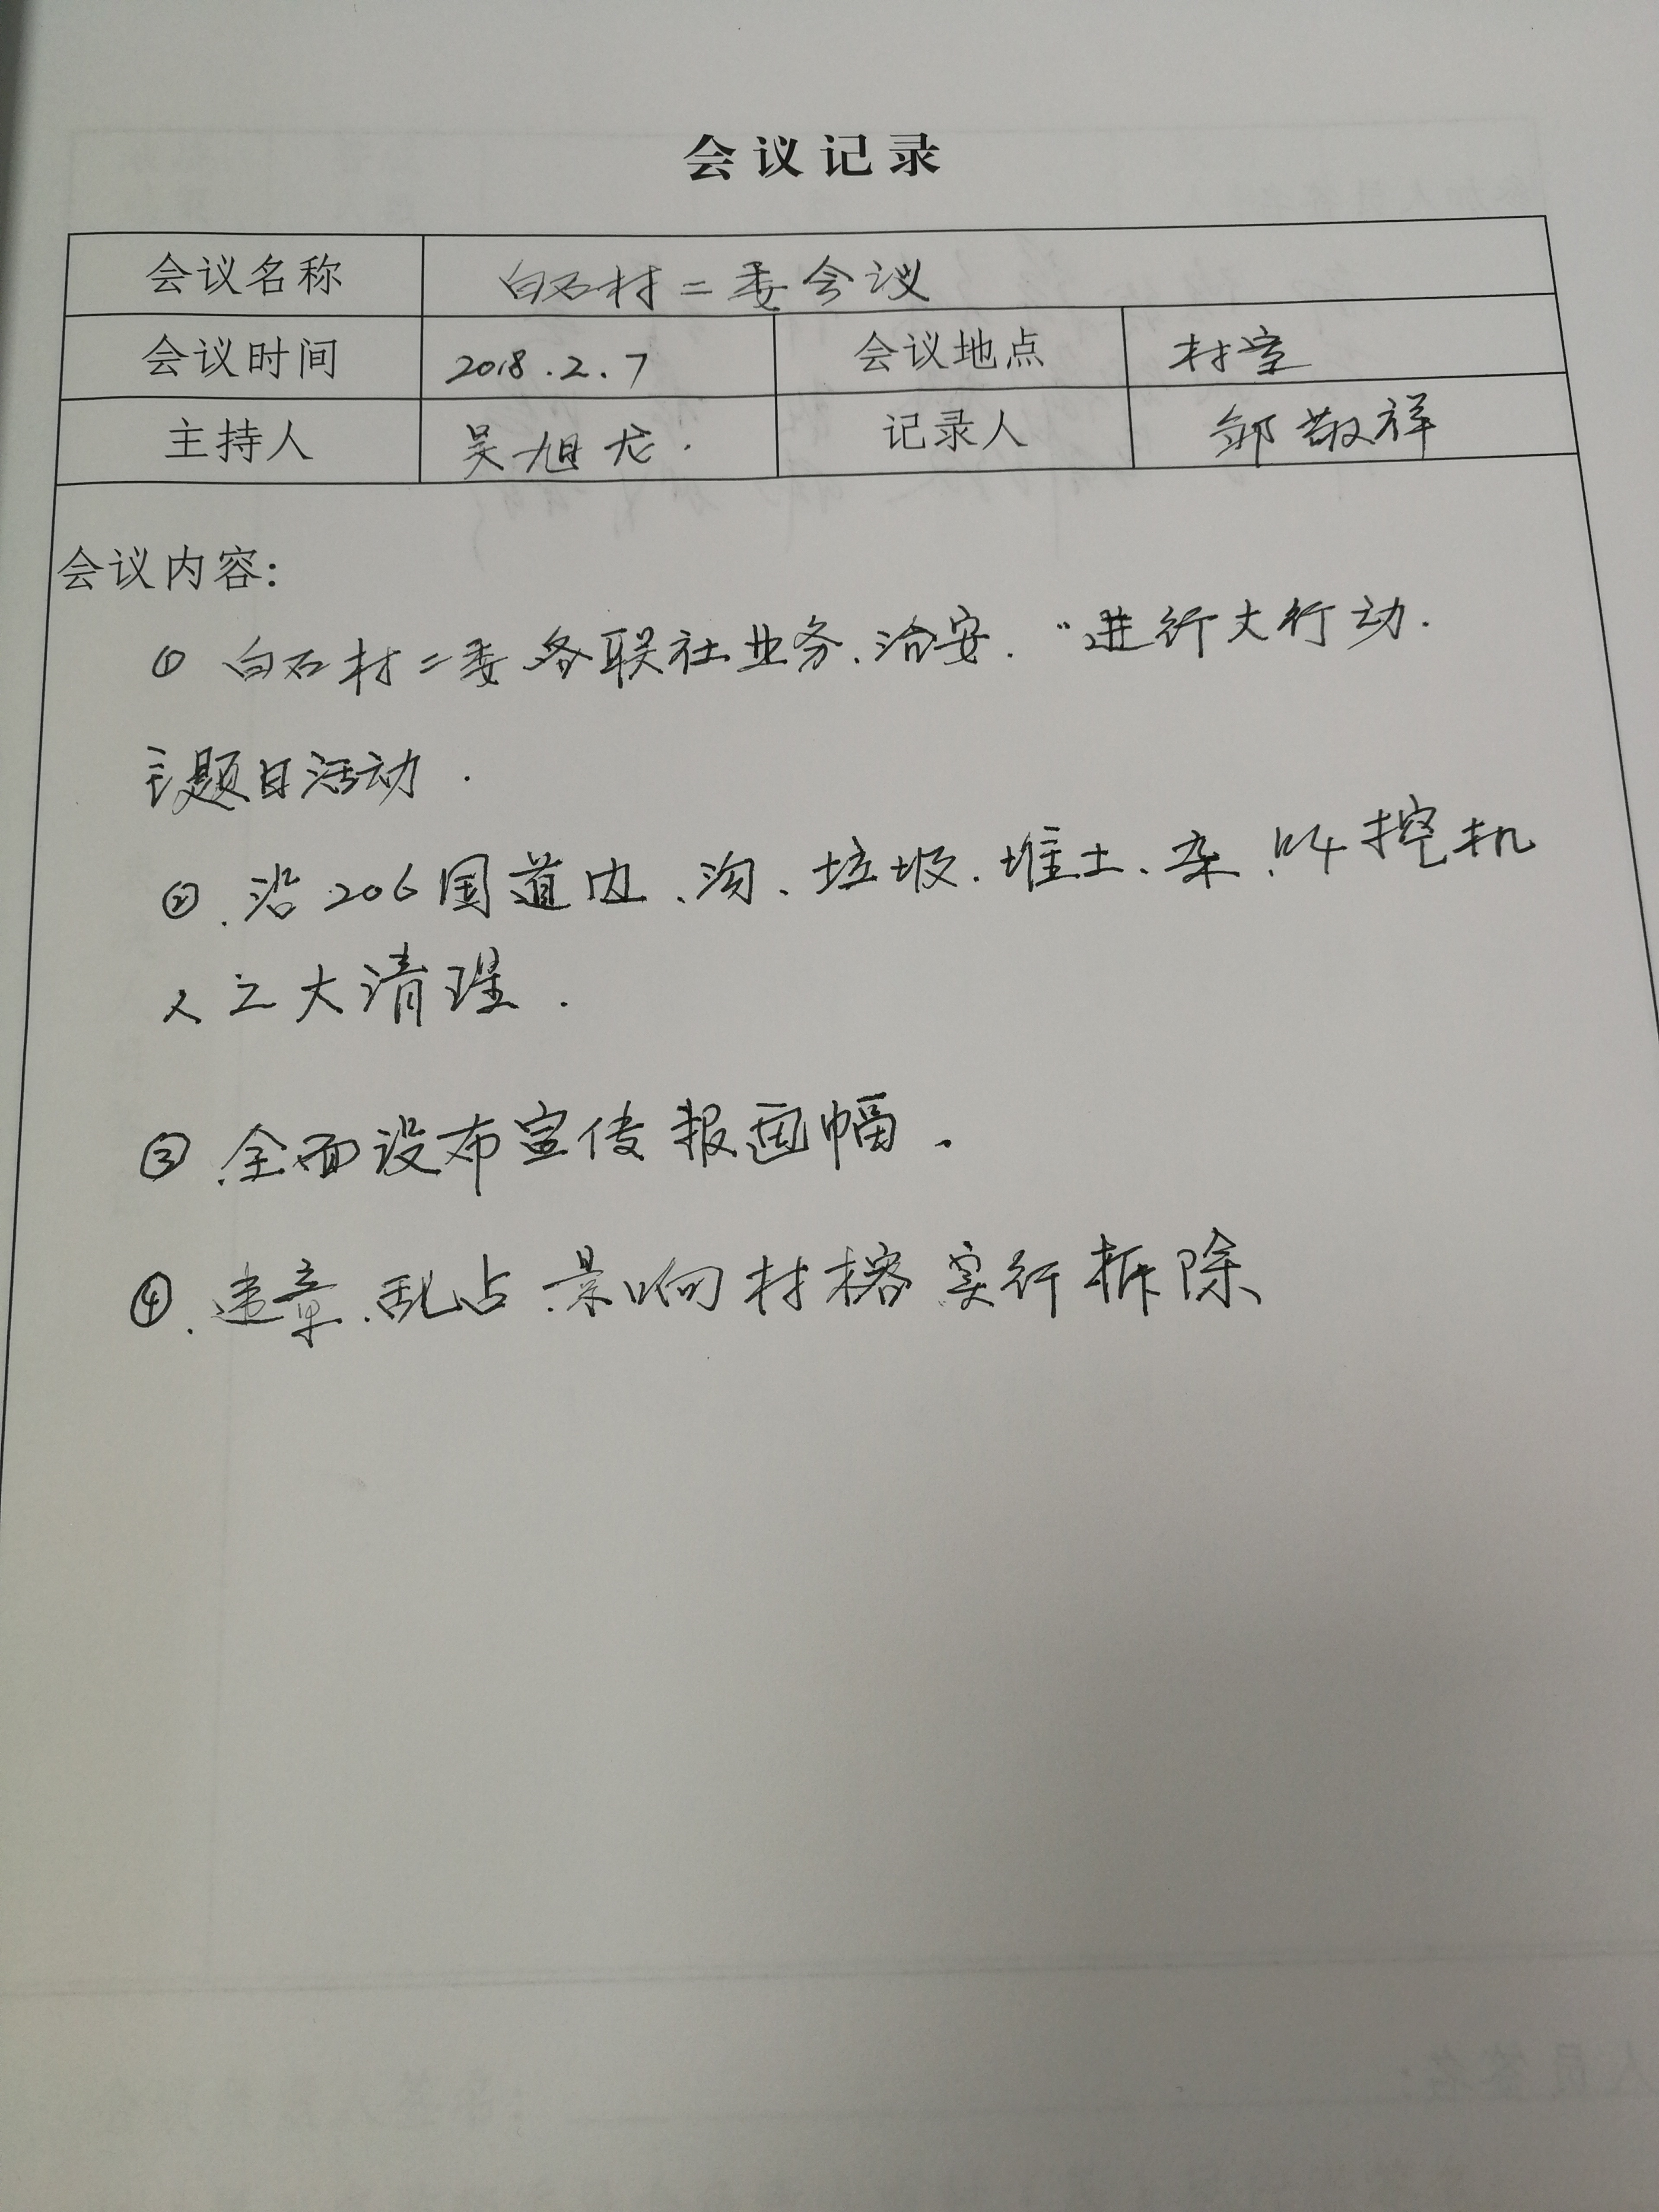 会议记录
会议名称 白石村二委会议
会议时间 2018.2.7 会议地点 村室
主持人 吴旭龙. 记录人 邹敬祥
会议内容:
① 白石村二委各联社业务、治安. "进行大行动.
主题日活动.
②.沿206国道内、沟、垃圾.堆土、杂、叫挖机
人工大清理.
③.全面设布宣传报画幅.
④.违章.乱占.景响村榕实行拆除